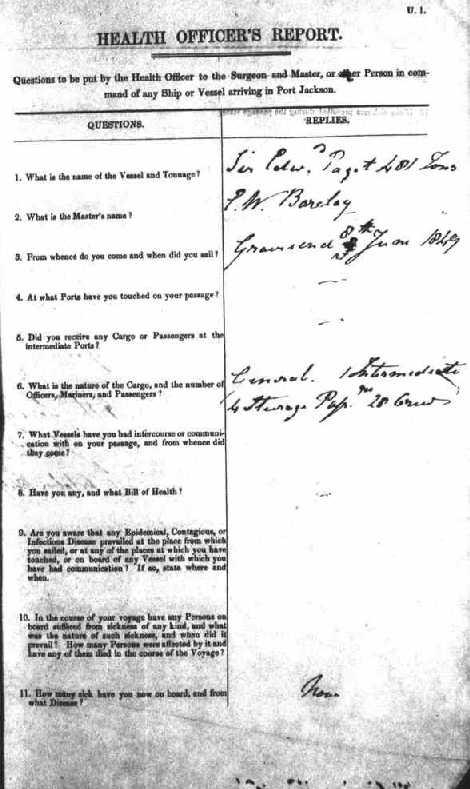 U. 1.
HEALTH OFFICER'S REPORT.
Questions to be put by the Health Officer to the Surgeon and Master, or other Person in com-
mand of any Ship or Vessel arriving in Port Jackson.
QUESTIONS.
REPLIES.
1. What is the name of the Vessel and Tonnage?
Sir Edwd. Paget 481 Tons
2. What is the Master's name?
Barclay
3. From whence do you come and when did you sail?
Gravesend 8th June 1849
4. At what Ports have you touched on your passage?
—
5. Did you receive any Cargo or Passengers at the
Intermediate Ports?
—
6. What is the nature of the Cargo, and the number of
Officers, Mariners, and Passengers?
General. 1 Intermediate
Steerage 28 Crew
7. What Vessels have you had intercourse or communi-
cation with on your passage, and from whence did
they come?
8. Have you any, and what Bill of Health?
—
9. Are you aware that any Epidemical, Contagious, or
Infectious Disease prevailed at the place from which
you sailed, or at any of the places at which you have
touched, or on board of any Vessel with which you
have had communication? If so, state where and
when.
10. In the course of your voyage have any Persons on
board suffered from sickness of any kind, and what
was the nature of such sickness, and when did it
prevail? How many Persons were affected by it and
have any of them died in the course of the Voyage?
11. How many sick have you now on board, and from
what Disease?
None